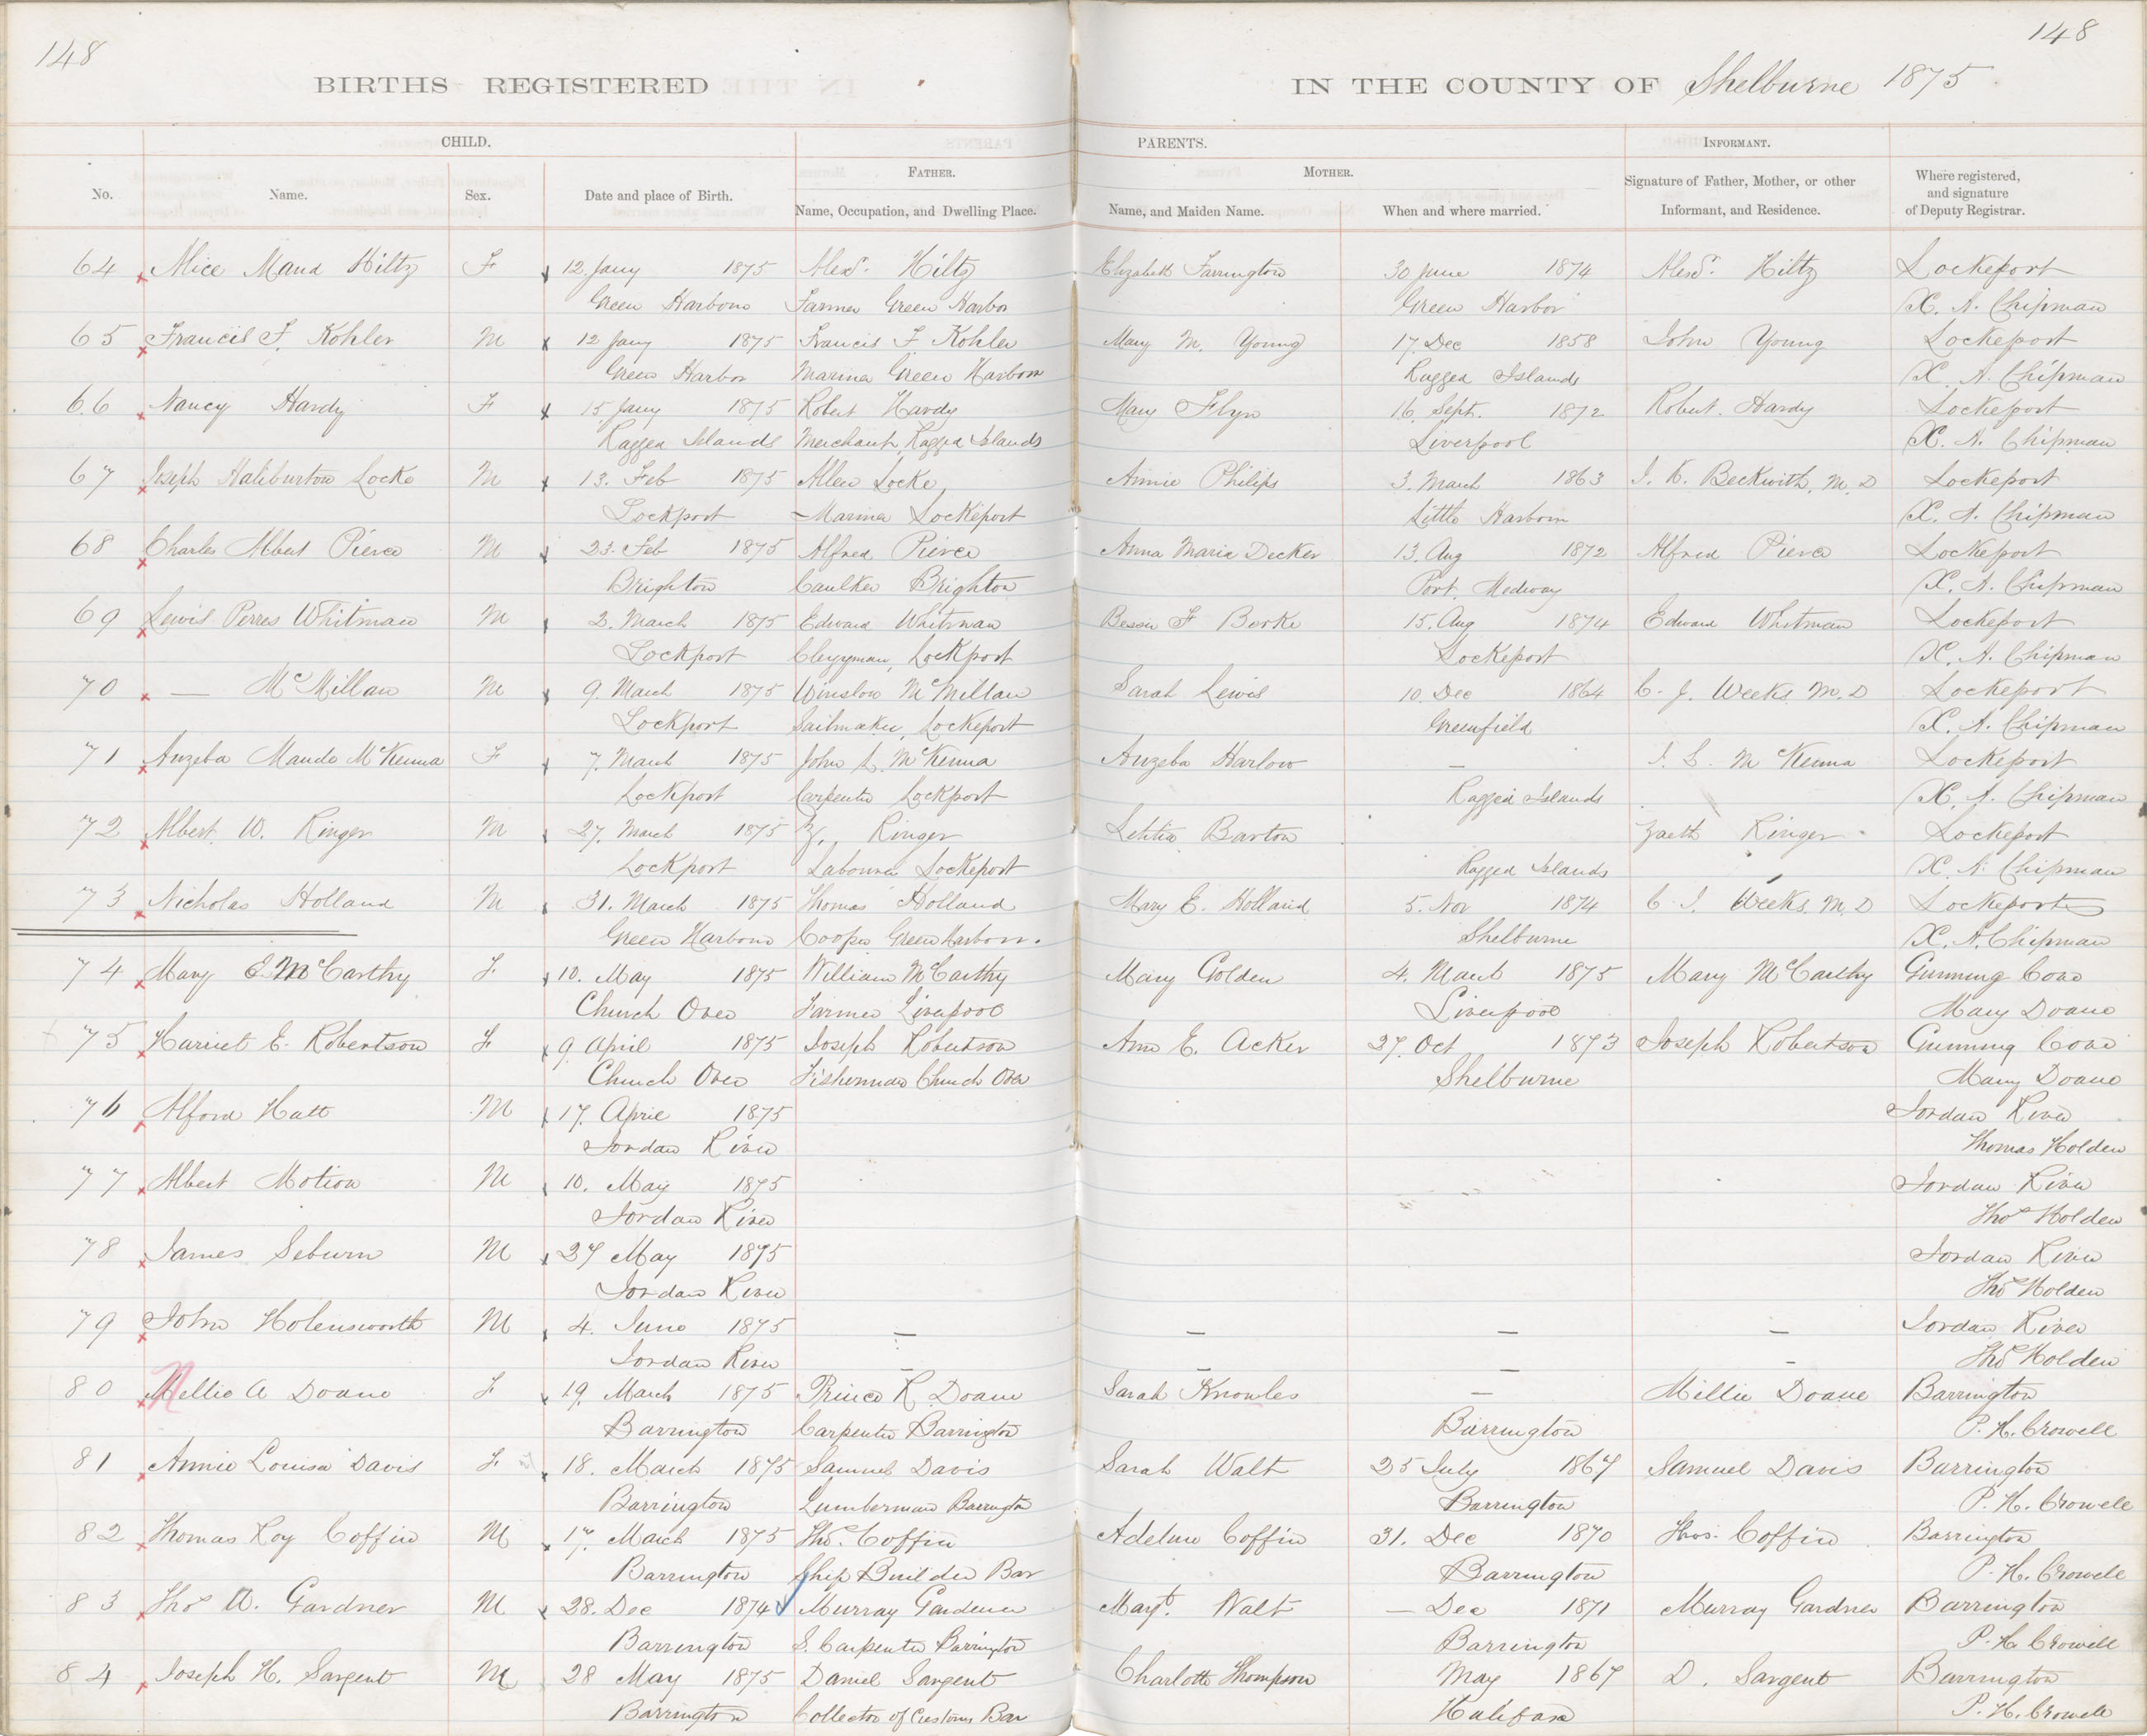 148
148
BIRTHS REGISTERED IN THE COUNTY OF Shelburne 1875
CHILD. PARENTS. INFORMANT.
FATHER. MOTHER.
No. Name. Sex. Date and place of Birth. Name, Occupation, and Dwelling Place. Name, and Maiden Name. When and where married. Signature of Father, Mother, or other Informant, and Residence. Where registered, and signature of Deputy Registrar.
64 Alice Maud Hiltz F 12 Jany 1875 Alexr. Hiltz Elizabeth Farrington 30 June 1874 Alexr. Hiltz Lockeport
Green Harbour Farmer Green Harbor Green Harbor X. A. Chipman
65 Francis F. Kohler M 12 Jany 1875 Francis F Kohler Mary M. Young 17. Dec 1858 John Young Lockeport
Green Harbor Mariner Green Harbour Ragged Islands X. A. Chipman
66 Nancy Hardy F 15 Jany 1875 Robert Hardy Mary Flyn 16. Sept. 1872 Robert. Hardy Lockeport
Ragged Islands Merchant, Ragged Islands Liverpool X. A. Chipman
67 Joseph Haliburton Locke M 13. Feb 1875 Allen Locke Annie Philips 3. March 1863 J. K. Beckwith, M. D Lockeport
Lockport Mariner Lockeport Little Harbour X. A. Chipman
68 Charles Albert Pierce M 23. Feb 1875 Alfred Pierce Anna Maria Decker 13. Aug 1872 Alfred Pierce Lockeport
Brighton Caulker Brighton Port. Medway X. A. Chipman
69 Lewis Perres Whitman M 2. March 1875 Edward Whitman Bessie F Borke 15. Aug 1874 Edward Whitman Lockeport
Lockport Clergyman, Lockport Lockeport X. A. Chipman
70 — McMillan M 9. March 1875 Winslow McMillan Sarah Lewis 10. Dec 1864 C. J. Weeks M. D Lockeport
Lockport Sailmaker, Lockeport Greenfield X. A. Chipman
71 Auzeba Maude McKenna F 7. March 1875 John L. McKenna Auzeba Harlow — J. L. McKenna Lockeport
Lockport Carpenter Lockport Ragged Islands X. A. Chipman
72 Albert. W. Ringer M 27. March 1875 Z. Ringer Letitia Barton Zaeth Ringer Lockeport
Lockport Labourer Lockeport Ragged Islands X. A. Chipman
73 Nicholas Holland M 31. March 1875 Thomas Holland Mary E. Holland 5. Nov 1874 C. J. Weeks, M. D Lockeport
Green Harbour Cooper Green Harbour. Shelburne X. A. Chipman
74 Mary E McCarthy F. 10. May 1875 William McCarthy Mary Golden 4. March 1875 Mary McCarthy Gunning Cove
Church Over Farmer Liverpool Liverpool Mary Doane
75 Harriet E. Robertson F 9 April 1875 Joseph Robertson Ann E. Acker 27. Oct 1873 Joseph Robertson Gunning Cove
Church Over Fisherman Church Over Shelburne Mary Doane
76 Alford Hatt M 17. April 1875 Jordan River
Jordan River Thomas Holden
77 Albert Motion M 10. May 1875 Jordan River
Jordan River Thos Holden
78 James Seburn M 27 May 1875 Jordan River
Jordan River Thos Holden
79 John Holensworth M 4. June 1875 — — — — Jordan River
Jordan River — — — — Thos Holden
80 Nellie A Doane F. 19. March 1875 Prince K. Doane Sarah Knowles — Millie Doane Barrington
Barrington Carpenter Barrington Barrington P. H. Crowell
81 Annie Louisa Davis F. 18. March 1875 Samuel Davis Sarah Walt 25 July 1867 Samuel Davis Barrington
Barrington Lumberman Barrington Barrington P. H. Crowell
82 Thomas Roy Coffin M 17. March 1875 Thos. Coffin Adeline Coffin 31. Dec 1870 Thos. Coffin Barrington
Barrington Ship Builder Bar Barrington P. H. Crowell
83 Thos W. Gardner M 28. Dec 1874 Murray Gardener Margt. Walt — Dec 1871 Murray Gardner Barrington
Barrington S. Carpenter Barrington Barrington P. H. Crowell
84 Joseph H. Sargent M 28 May 1875 Daniel Sargent Charlotte Thompson May 1867 D. Sargent Barrington
Barrington Collector of Customs Bar Halifax P. H. Crowell